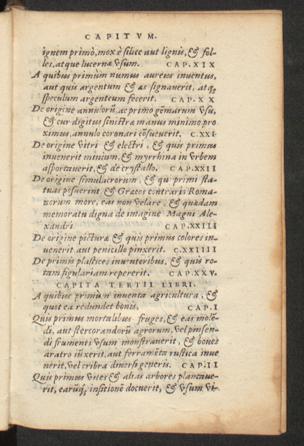 CAPITVM.
ignem primò, mox è silice aut lignis, & fol-
les, atque lucernæ vsum. CAP. XIX
A quibus primum numus aureus inuentus,
aut quis argentum & æs signauerit, atq;
speculum argenteum fecerit. CAP. XX
De origine annulorũ, ac primo gẽmarum vsu,
& cur digitus sinistræ manus minimo pro
ximus, annulo coronari cõsueuerit. C. XXI.
De origine vitri & electri, & quis primus
inuenerit minium, & myrrhina in vrbem
asportauerit, & de crystallo. CAP. XXII
De origine simulacrorum, & qui primi sta-
tuas posuerint & Græcos contrario Roma-
norum more, eas non velare, & quædam
memoratu digna de imagine Magni Ale-
xandri CAP. XXIII
De origine picturæ & quis primus colores in-
uenerit aut penicillo pinxerit. C. XXIIII
De primis plastices inuentoribus, & quis ro-
tam figulariam repererit. CAP. XXV.
CAPITA TERTII LIBRI.
A quibus primum inuenta agricultura, &
quot ea redundet bonis. CAP. I
Quis primus mortalibus fruges, & eas molẽ-
di, aut stercorandorũ agrorum, vel pinsen-
di frumenti vsum monstrauerit, & boues
aratro iũxerit, aut ferramẽta rustica inue
nerit, vel cribra diuersi generis. CAP. II
Quis primus vites & alias arbores plantaue-
rit, earũq; insitionẽ docuerit, & vsum vi-